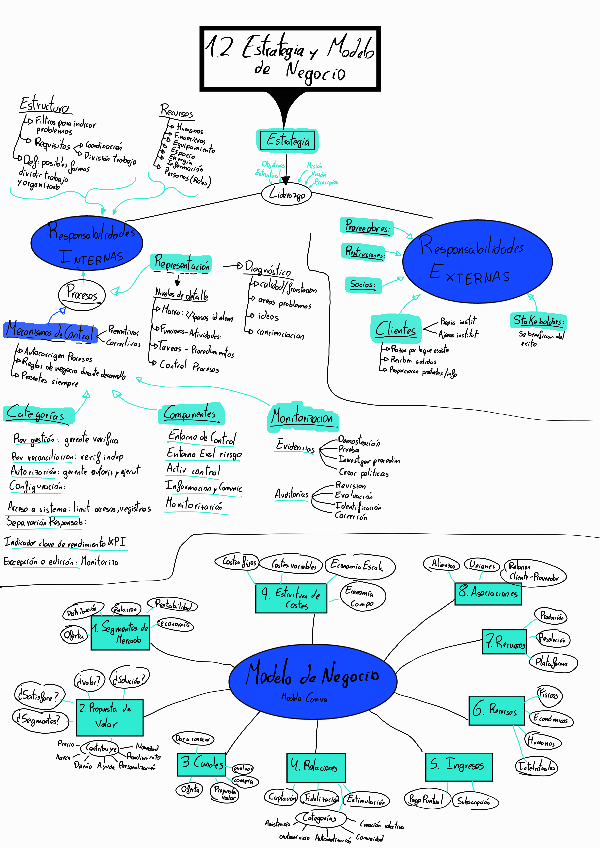 1.2 Estrategia y Modelo
de Negocio
Estrategia
Objetivos
Misión
Visión
Liderazgo
Estructura
Filtros para indicar
problemas
Requisitos
Coordinación
División trabajo
Def. posibles formas
dividir trabajo
y organizarlo
Recursos
Humanos
Financieros
Equipamiento
Espacio
Energía
Información
Personas (Roles)
Responsabilidades
INTERNAS
Procesos
Mecanismos de Control
Preventivas
Correctivas
Autocorrigen Procesos
Reglas de negocio durante desarrollo
Presentes siempre
Representación
Niveles de detalle
Macro:
Funciones-Actividades:
Tareas - Procedimientos
Control Procesos
Diagnóstico
calidad/frustración
áreas problemas
ideas
comunicación
Responsabilidades
EXTERNAS
Proveedores:
Motivaciones:
Socios:
Clientes
Razón por la que existe
Reciben salidas
Proporcionar productos/info
Stakeholders:
Se benefician del
éxito
Categorías
Por gestión: gerente verifica
Por reconciliación: verif indep
Autorización: gerente autoriz y ejecut
Configuración:
Acceso a sistema: limit accesos, registros
Separación Responsab:
Indicador clave de rendimiento KPI
Excepción o edición: Monitorizo
Componentes
Entorno de Control
Entorno Eval riesgo
Activ control
Informacion y Comunic
Monitorización
Monitorizacion
Evidencias
Demostración
Prueba
Investigar procedim
Crear políticas
Auditorías
Revisión
Evaluación
Identificación
Corrección
Modelo de Negocio
Modelo Canva
1. Segmentos de
Mercado
Distribución
Relación
Rentabilidad
Economía
Oferta
2. Propuesta de
Valor
¿Satisface?
¿Valor?
¿Solución?
¿Segmentos?
Contribuye
Precio
Novedad
Rendimiento
Personalización
Ayuda
Diseño
3 Canales
Dar a conocer
evaluar
compra
Propuesta
valor
Oferta
4. Relaciones
Captación
Fidelización
Estimulación
Categorías
Asistencia
Automatización
Comunidad
Creación colectiva
5. Ingresos
Pago Puntual
Subscripción
6. Recursos
Físicos
Económicos
Humanos
Intelectuales
7. Recursos
Producción
Resolución
Plataforma
8. Asociaciones
Alianzas
Uniones
Relacion
Cliente-Proveedor
9. Estructura de
Costes
Costes fijos
Costes variables
Economía Escala
Economía
Campo